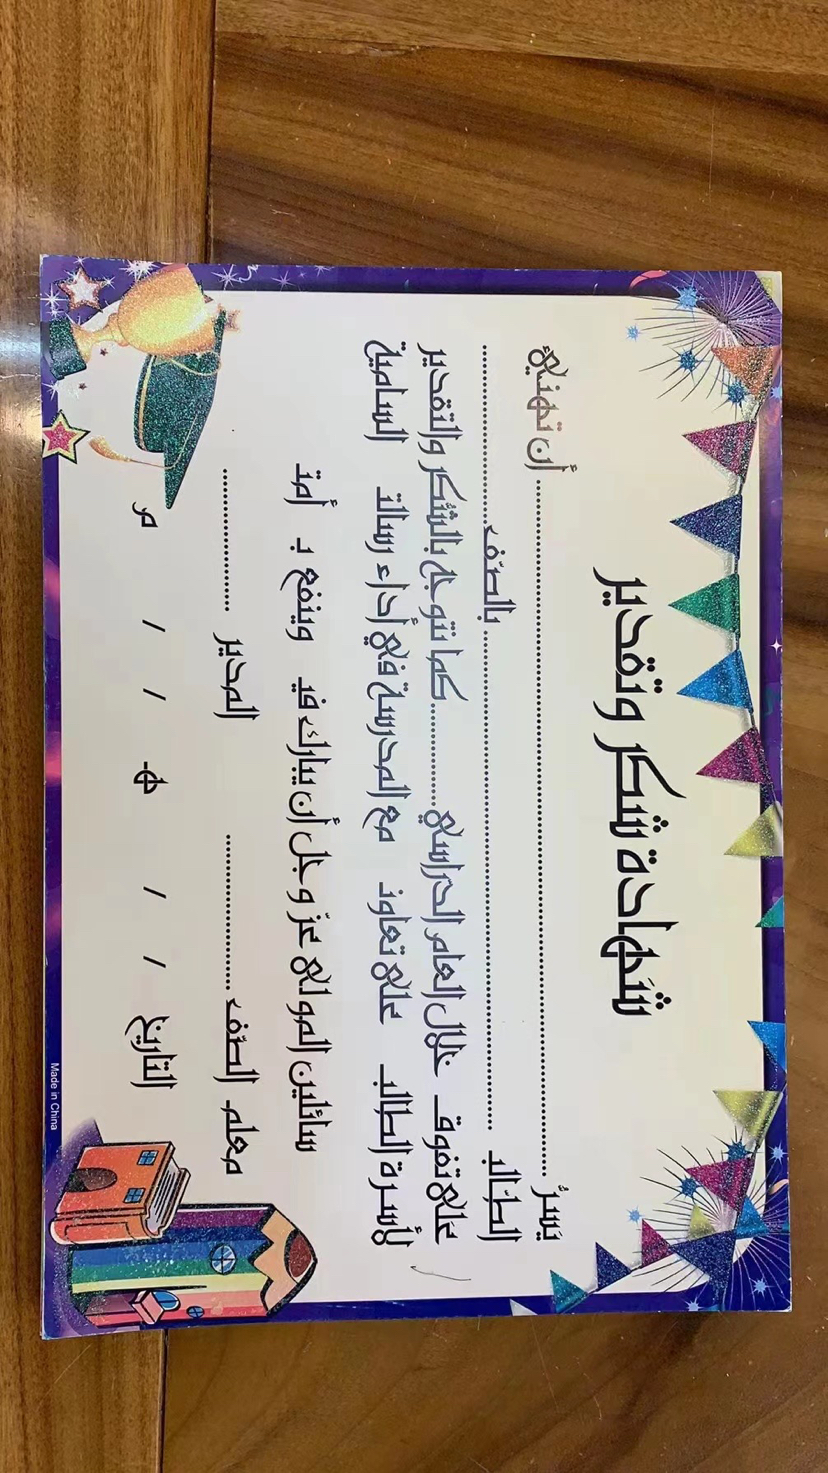 شهادة شكر وتقدير
يَسرُّ ........................................ أن تهنيءُ
الطالبـ ........................................ بالصّف ....................
علىُ تفوقـ خلال العام الدراسي .......... كما نتوجه بالشكر والتقدير
لأسرة الطالبـ علىُ تعاونـ مع المدرسة فيُ أداء رسالتـ السامية
سائلين المولىُ عزّ وجل أن يبارك فيـ وينفع بـ أمتـ
معلمـ الصّف .................... المدير ....................
التاريخ / / هـ / / مـ
Made in China